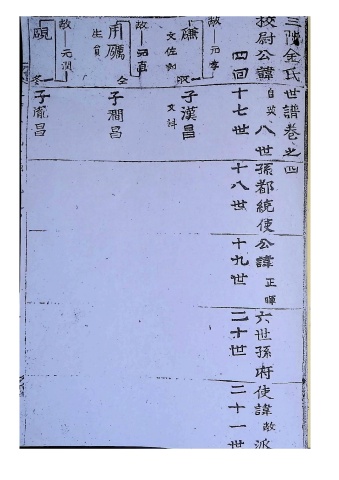 三陟金氏世譜卷之四
校尉公諱自英八世孫都統使公諱正暉六世孫府使諱故派
四回十七世 十八世 十九世 二十世 二十一世
故 元亨
文佐郎
子漢昌
文科
故 元直
用礪
生員
子澗昌
故 元潤
子胤昌